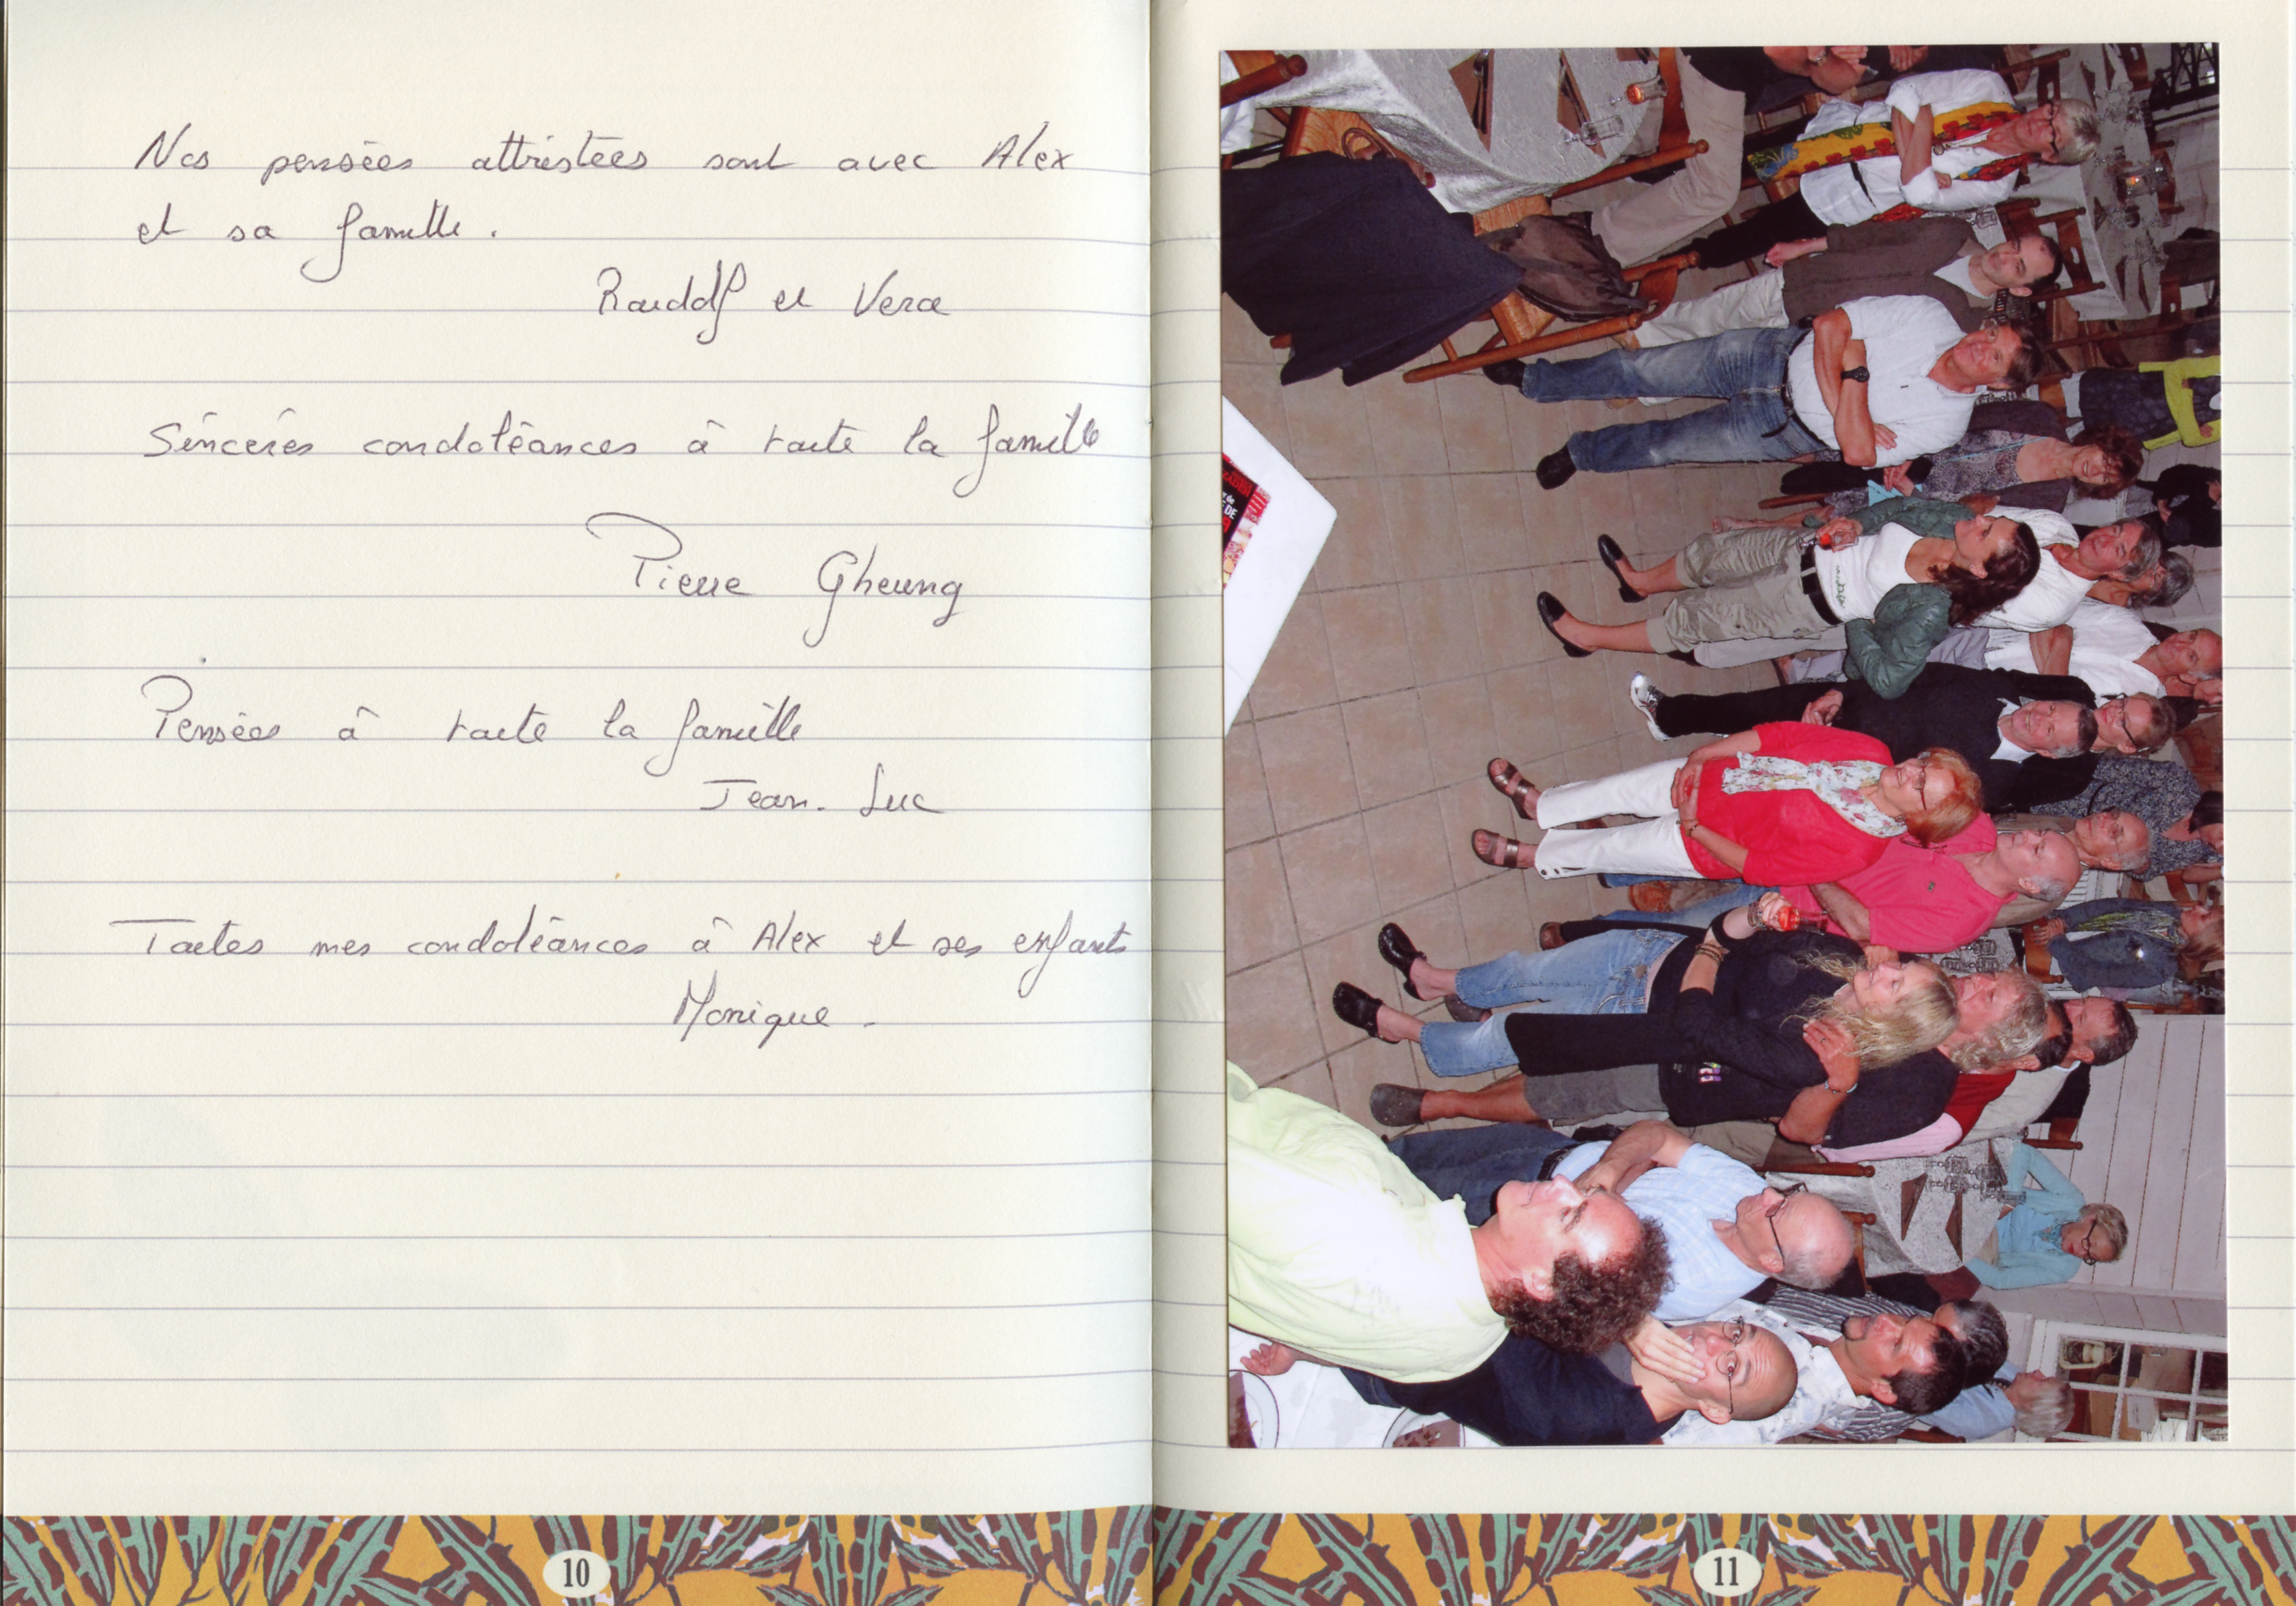 Nos pensées attristées sont avec Alex
et sa famille.
et Vera
Sincères condoléances à toute la famille
Pierre Gheung
Pensées à toute la famille
Jean-Luc
Toutes mes condoléances à Alex et ses enfants
Monique.
DE
10
11